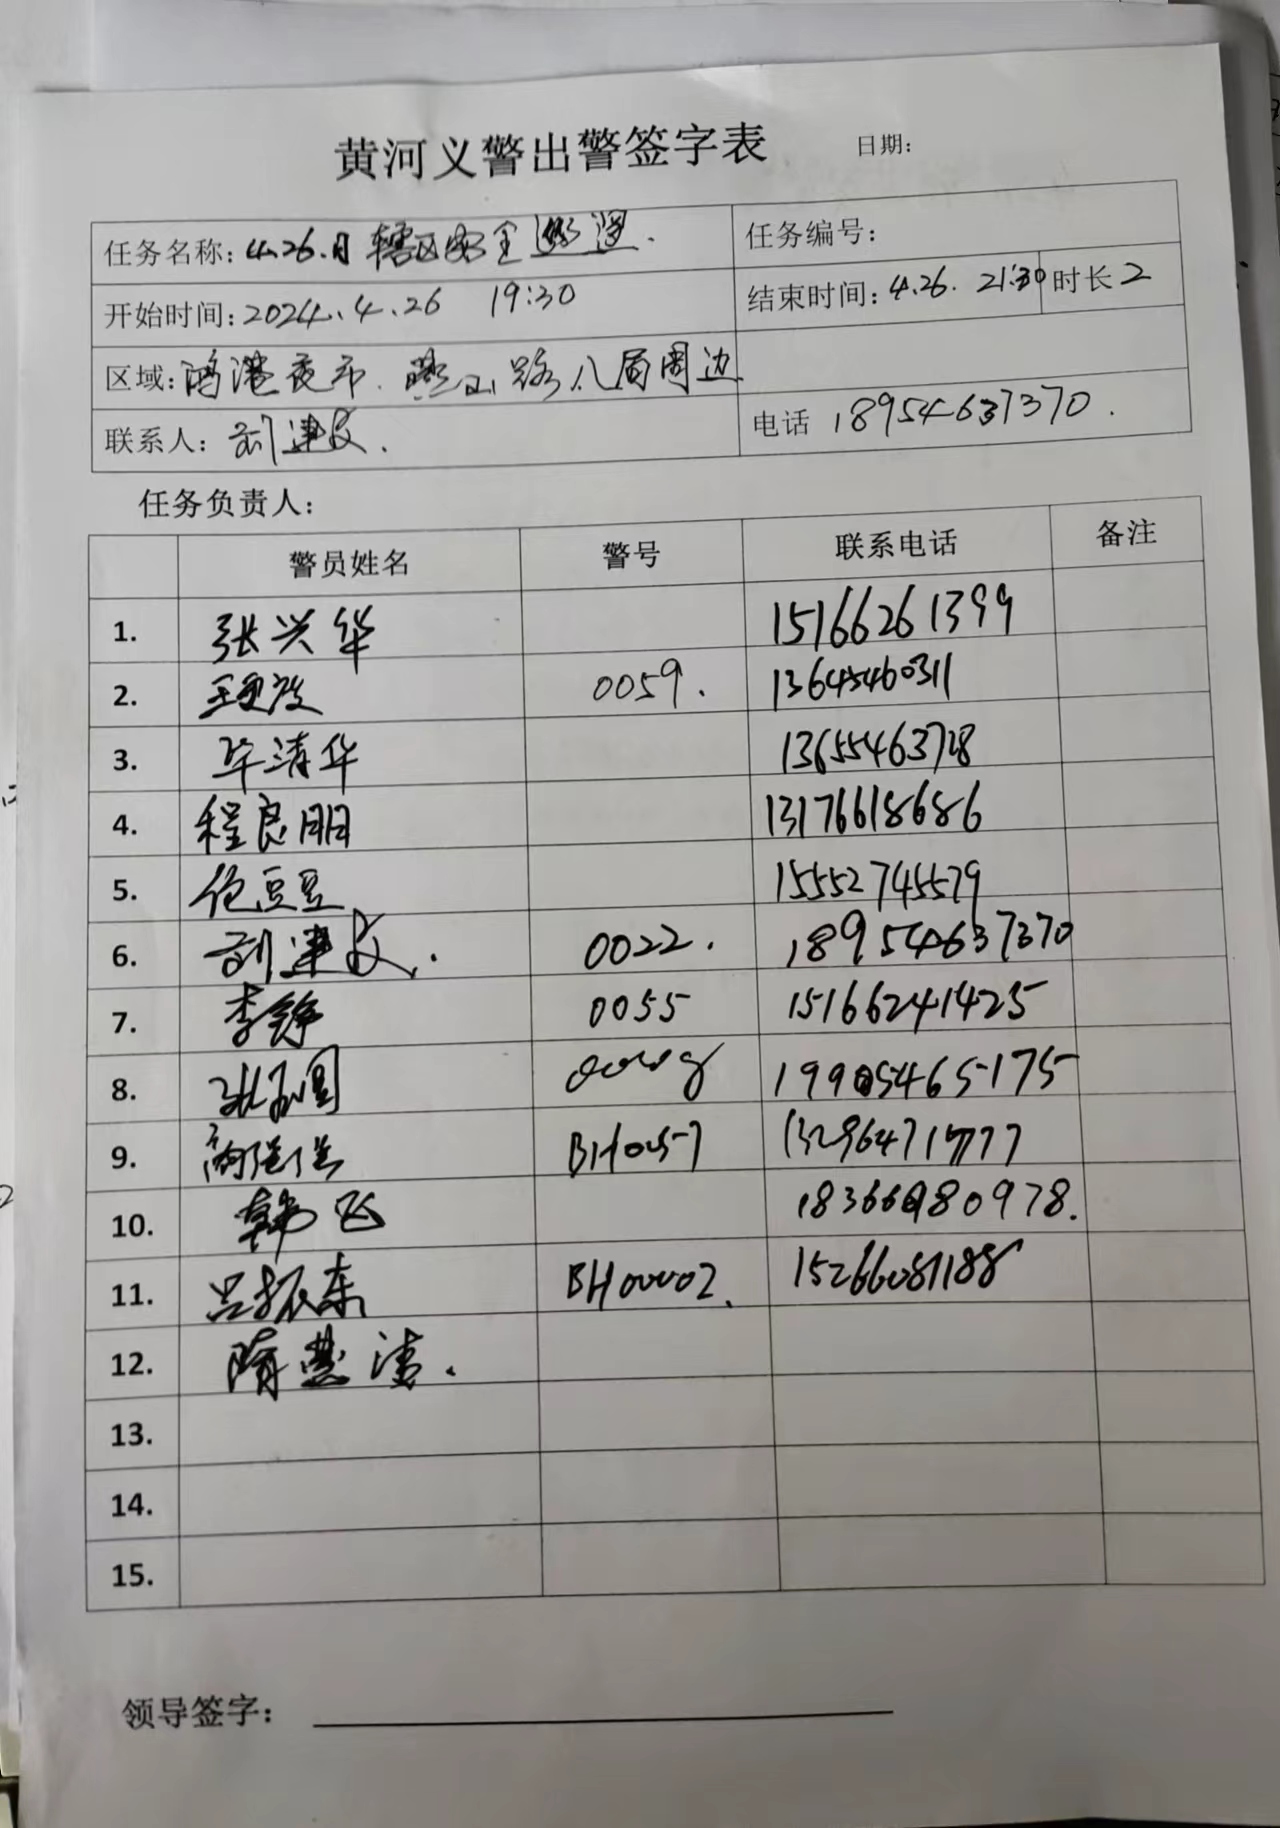 黄河义警出警签字表 日期：
任务名称：4.26.日辖区安全巡逻. 任务编号：
开始时间：2024.4.26 19:30 结束时间：4.26. 21:30 时长 2
区域：鸿港夜市. 燕山路.八局周边
联系人：刘建民. 电话 18954637370.
任务负责人：
警员姓名 警号 联系电话 备注
1. 张兴华 15166261399
2. 0059. 13645460311
3. 毕清华 13655463728
4. 程良朋 13176618686
5. 豆豆 15552745579
6. 刘建民. 0022. 18954637370
7. 李铮 0055 15166241425
8. 19905465175
9. BH0057
10. 韩飞
11. 吕振东 BH00002. 15266081188
12. 隋燕清.
13.
14.
15.
领导签字：